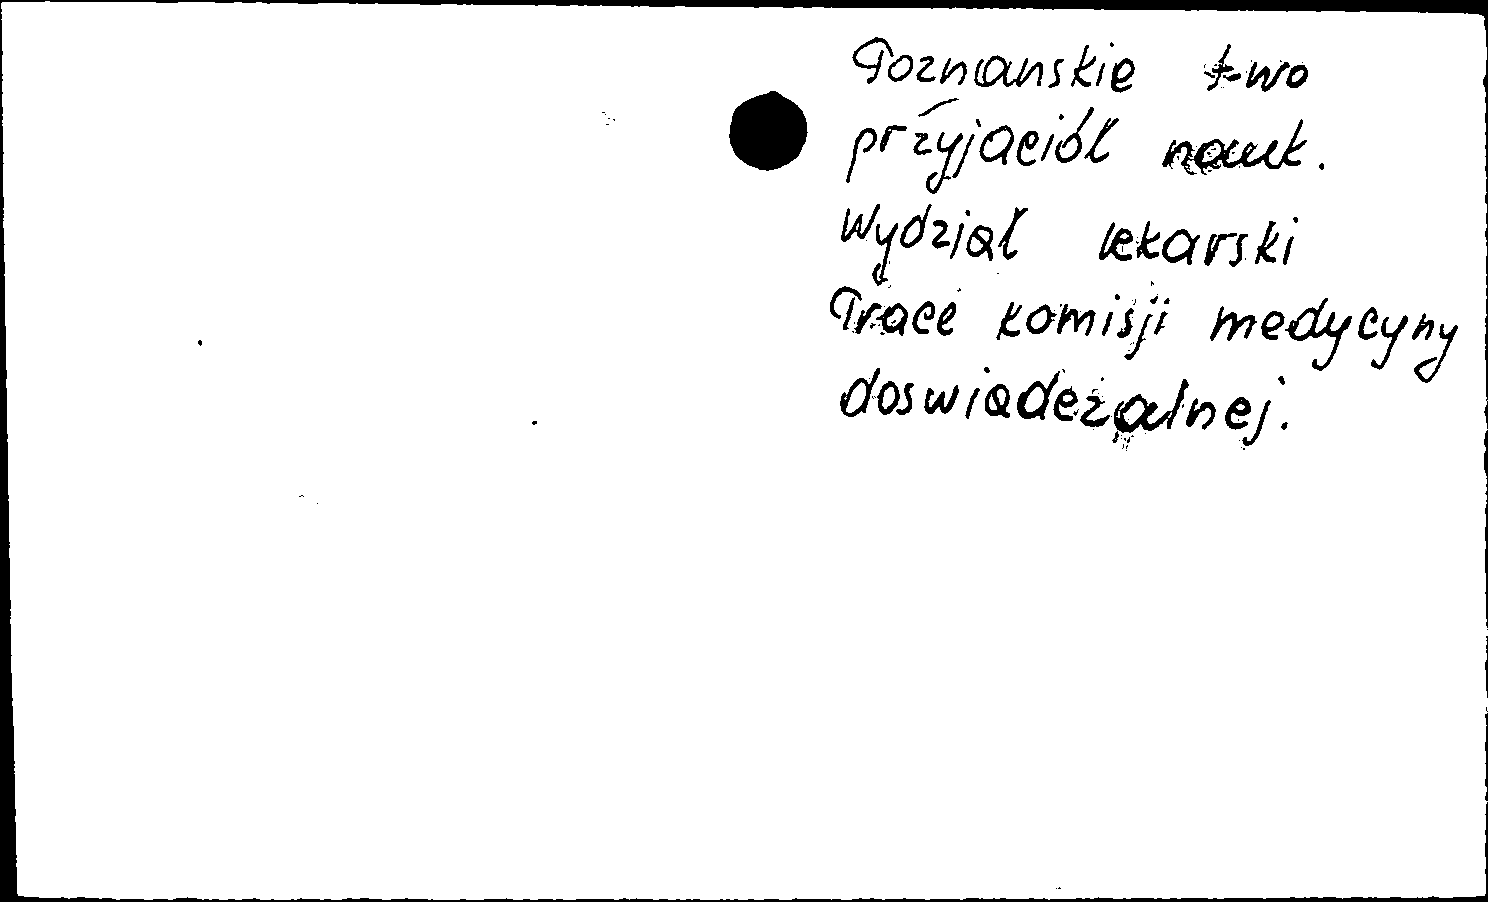 Poznanskie t-wo
przyjaciół nauk.
Wydział lekarski
Prace komisji medycyny
doswiadczalnej.